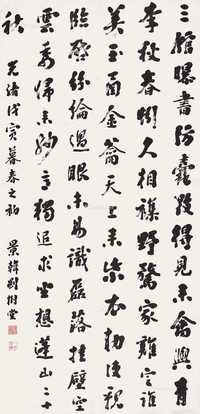 三館曝書防蠹毀得見來禽與青
李秋春蚓久相雜野鶩家雞定誰
美玉函金鑰天上來紫衣敕使親
臨啓紛綸過眼未易識磊落挂壁空
雲委歸來妙意獨追求坐想蓬山二十
秋
光緒戊寅暮春之初 景韓劉樹堂